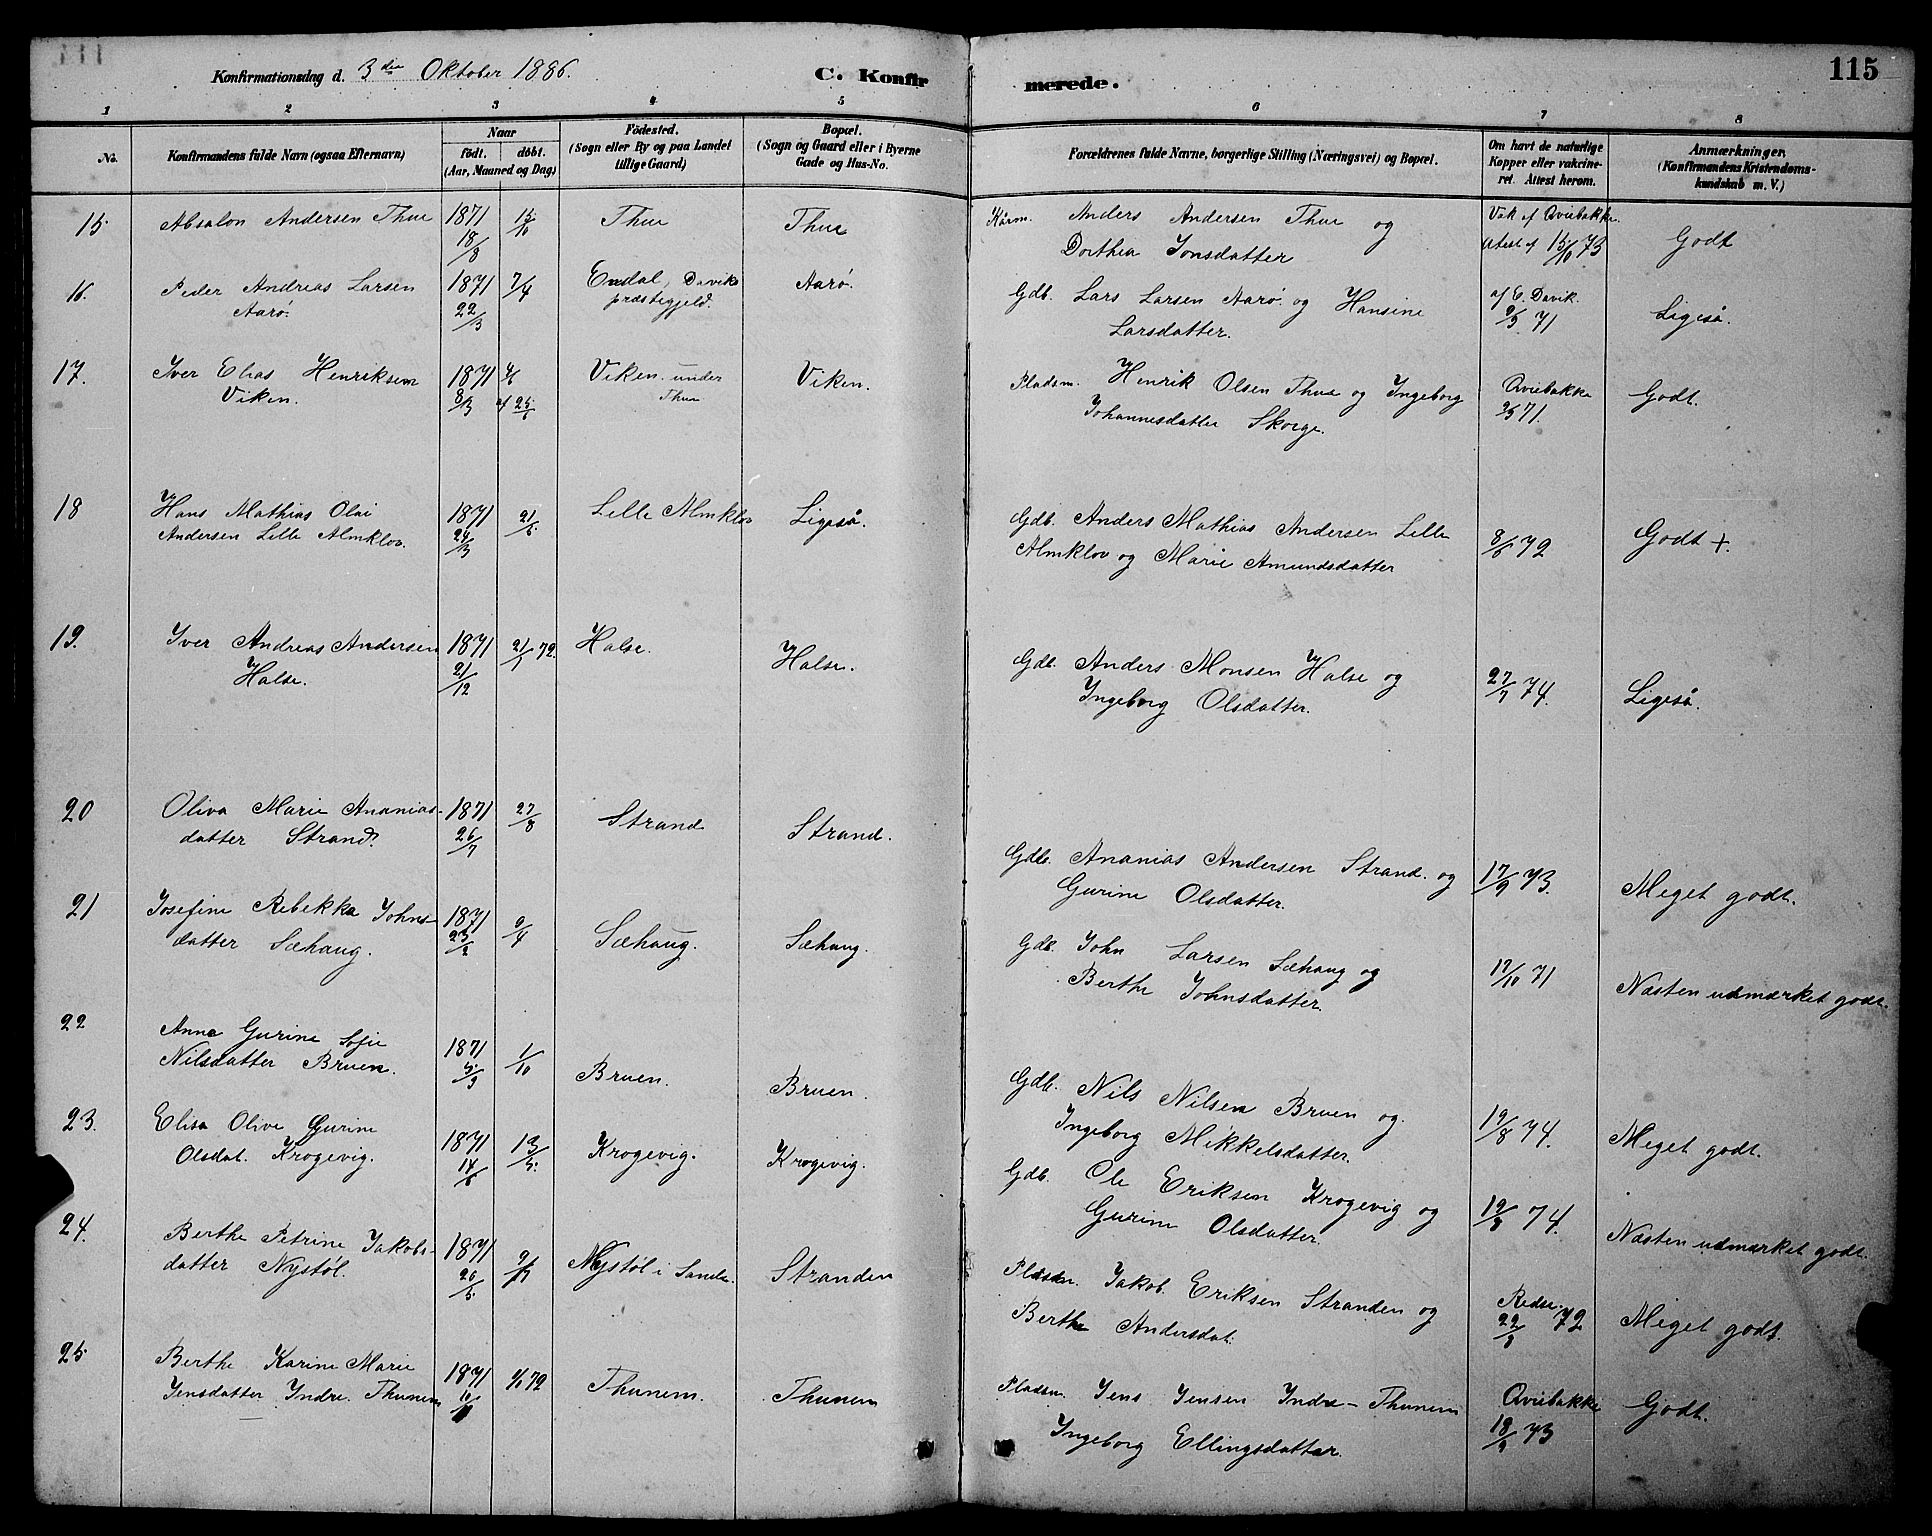 115
Konfirmationsdag d. 3die Oktober 1886.
C. Konfirmerede.
1 2 3 4 5 6 7 8
No.
Konfirmandens fulde Navn (ogsaa Efternavn)
Naar
födt. döbt.
(Aar, Maaned og Dag)
Födested.
(Sogn eller By og paa Landet
tillige Gaard)
Bopæl.
(Sogn og Gaard eller i Byerne
Gade og Hus-No.
Forældrenes fulde Navne, borgerlige Stilling (Næringsvei) og Bopæl.
Om havt de naturlige
Kopper eller vakcine-
ret. Attest herom.
Anmærkninger,
(Konfirmandens Kristendoms-
kundskab m. V.)
15. Absalon Andersen Thue 1871 15/10 Thue Thue Kårm. Anders Andersen Thue og Vak af Qviebakke
18/8 Dorthea Jonsdatter Attest af 15/10 73 Godt
16. Peder Andreas Larsen 1871 7/4 Endal, Daviks Aarø. Gdb. Lars Larsen Aarø og Hansine af E. Davik.
Aarø. 22/3 præstegjeld. Larsdatter. 71 Ligeså.
17. Iver Elias Henriksen 1871 Viken under Viken. Pladsm. Henrik Olsen Thue og Ingeborg Qviebakke
Viken. 8/3 Thue Johannesdatter Skorge. 71. Godt.
18 Hans Mathias Olai 1871 21/5 Lille Almklov Ligeså. Gdb. Anders Mathias Andersen Lille
Andersen Lille Almklov. Almklov og Marie Amundsdatter 8/6 72 Godt +.
19. Iver Andreas Andersen 1871 21/1 72. Halse. Halse. Gdb. Anders Monsen Halse og
Halse. 21/12 Ingeborg Olsdatter. 27/7 74. Ligeså.
20 Oliva Marie Ananias- 1871 27/8 Strand Strand. Gdb. Ananias Andersen Strand og 17/9 73.
datter Strand. 26/7 Gurine Olsdatter. Meget godt.
21 Josefine Rebekka Johns- 1871 9/4 Sæhaug. Sæhaug. Gdb. John Larsen Sæhaug og
datter Sæhaug. 23/2 Berthe Johnsdatter. 17/10 71 Næsten udmærket godt.
22 Anna Gurine Sofie 1871 1/10 Bruen. Bruen. Gdb. Nils Nilsen Bruen og
Nilsdatter Bruen. 5/9 Ingeborg Mikkelsdatter. 19/8 74. Meget godt.
23. Elisa Olive Gurine 1871 13/5. Krogevig. Krogevig. Gdb. Ole Eriksen Krogevig og
Olsdat. Krogevig. Gurine Olsdatter. 74. Næsten udmærket godt.
24. Berthe Petrine Jakobs- 1871 Nystøl i Sande. Stranden Pladsm. Jakob Eriksen Stranden og
datter Nystøl. 20/5 Berthe Andersdat. 72 Meget godt.
25 Berthe Karine Marie 1871 72 Thunem. Thunem Pladsm. Jens Jensen Indre-Thunem Qviebakke
Jensdatter Indre Thunem Ingeborg Ellingsdatter. 73 Godt.